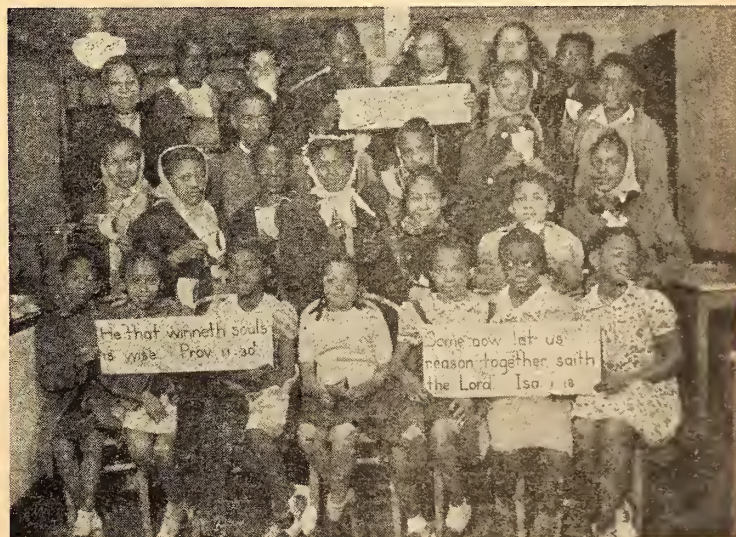 He that winneth souls
is wise. Prov. 11-30
Come now let us
reason together, saith
the Lord. Isa. 1 18